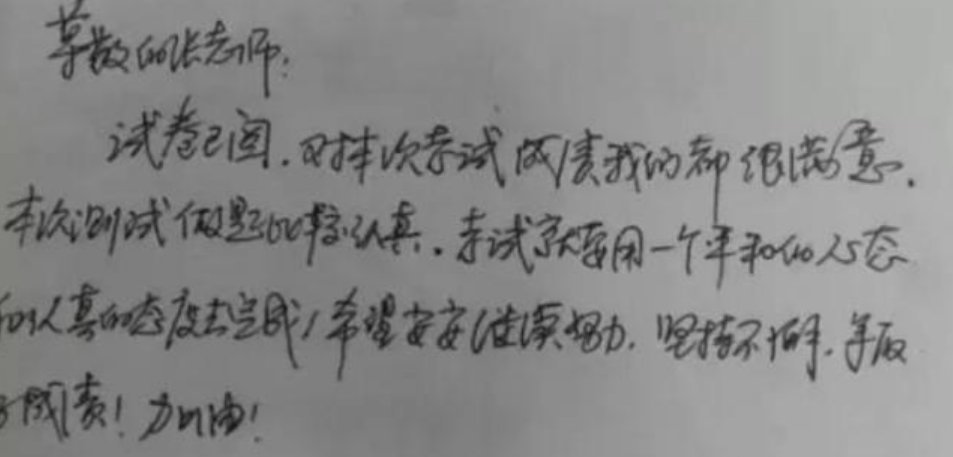 尊敬的张老师:
试卷已阅.对本次考试成绩我们都很满意.
本次测试做题比较认真.考试就要用一个平和的心态
和认真的态度去完成,希望安安继续努力.坚持不懈.争取
好成绩!加油!